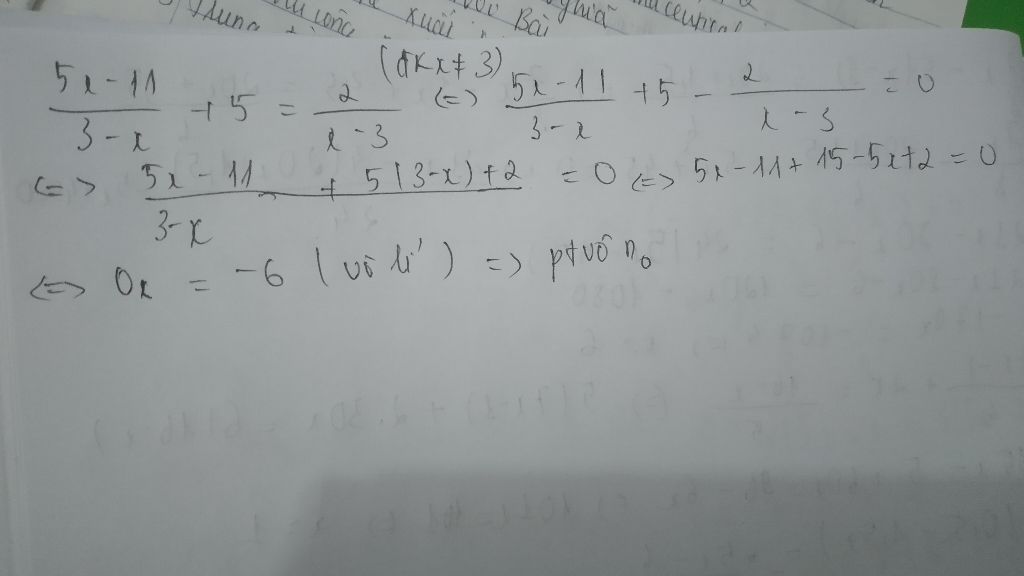 Thung xuôi Với Bài nghiã
(đk x ≠ 3)
5x - 11 / 3 - x + 5 = 2 / x - 3 <=> 5x - 11 / 3 - x + 5 - 2 / x - 3 = 0
<=> 5x - 11 + 5(3-x) + 2 / 3-x = 0 <=> 5x - 11 + 15 - 5x + 2 = 0
<=> 0x = -6 (vô lí) => pt vô no